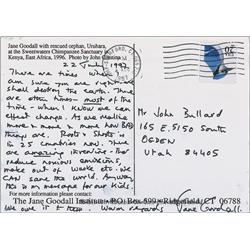 Jane Goodall with rescued orphan, Uruhara,
at the Sweetwaters Chimpanzee Sanctuary
Kenya, East Africa, 1996. Photo by John
22 July 1997
There are times when I
am sure you are right - we
shall destroy the earth. There
are other times - most of the
time - when I know we can
effect change. As we realize
more & more how
things are. Roots & Shoots is
in 25 countries now. There
are amazing inventions that
reduce noxious emissions,
make out of waste etc. We
CAN save the world. Anyway
this is my message for our kids.
For more information please contact:
The Jane Goodall Institute • P.O. Box 599 • Ridgefield, CT 06788
We owe it to them Warm regards Jane Goodall
Mr John Bullard
165 E. 5150 South
OGDEN
Utah 84405
20